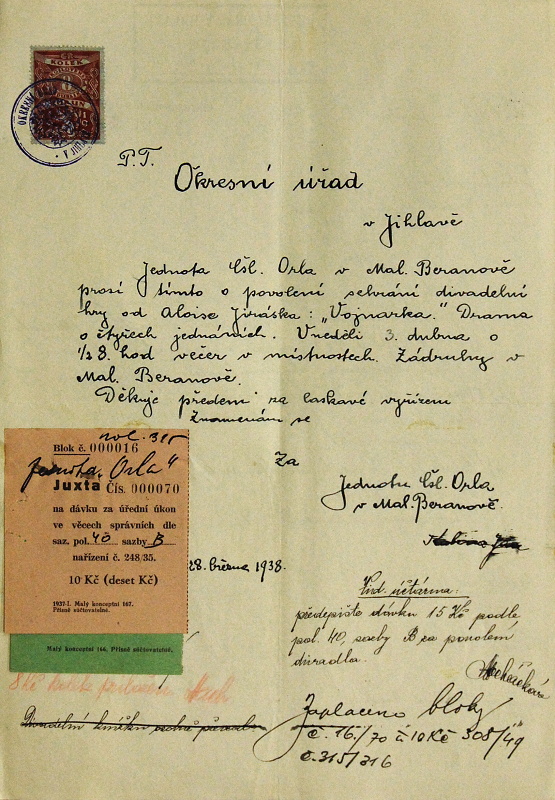 KOLEK
P.T.
Okresní úřad
v Jihlavě
Jednota Čsl. Orla v Mal. Beranově
prosí tímto o povolení sehrání divadelní
hry od Aloise Jiráska: „Vojnarka." Drama
o čtyřech jednáních. V neděli 3. dubna o
1/2 8. hod večer v místnostech. Zádruhy v
Mal. Beranově.
Děkuje předem za laskavé vyřízení
Znamenám se
Za
Jednotu Čsl. Orla
v Mal. Beranově.
28. března 1938.
Blok č. 000016
Jednota „Orla"
Juxta Čís. 000070
na dávku za úřední úkon
ve věcech správních dle
saz. pol. 40 sazby B
nařízení č. 248/35.
10 Kč (deset Kč)
1937-I. Malý konceptní 167.
Přísně súčtovatelné.
Malý konceptní 166. Přísně súčtovatelné.
účtárna:
předepište dávku 15 Kč podle
pol. 40, sazby B za povolení
divadla.
8 Kč kolek
Zaplaceno bloky
č. 16./70 à 10 Kč 308/49
č. 315/316